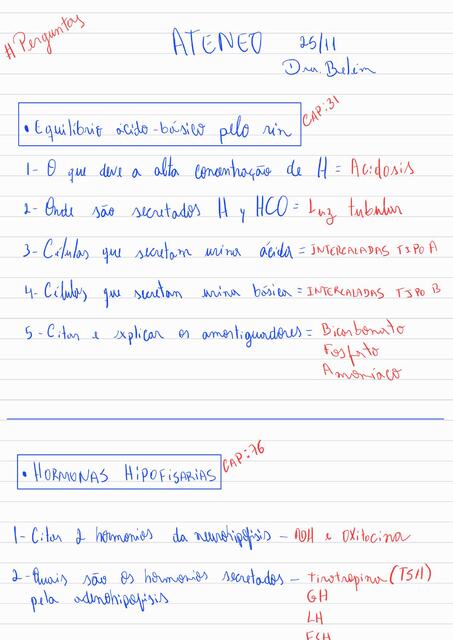 # Perguntas
ATENEO 25/11
Dra. Belém
• Equilíbrio ácido-básico pelo rin CAP:31
1- O que deve a alta concentração de H = Acidosis
2- Onde são secretados H y HCO = Luz tubular
3- Células que secretam urina ácida = INTERCALADAS TIPO A
4- Células que secretan urina básica = INTERCALADAS TIPO B
5- Citar e explicar os amortiguadores = Bicarbonato
Fosfato
Amoníaco
• HORMONAS HIPOFISARIAS CAP:76
1- Citar 2 hormonios da neurohipofisis - ADH e Oxitocina
2- Quais são os hormonios secretados - Tirotropina (TSH)
pela adenohipofisis GH
LH
FSH